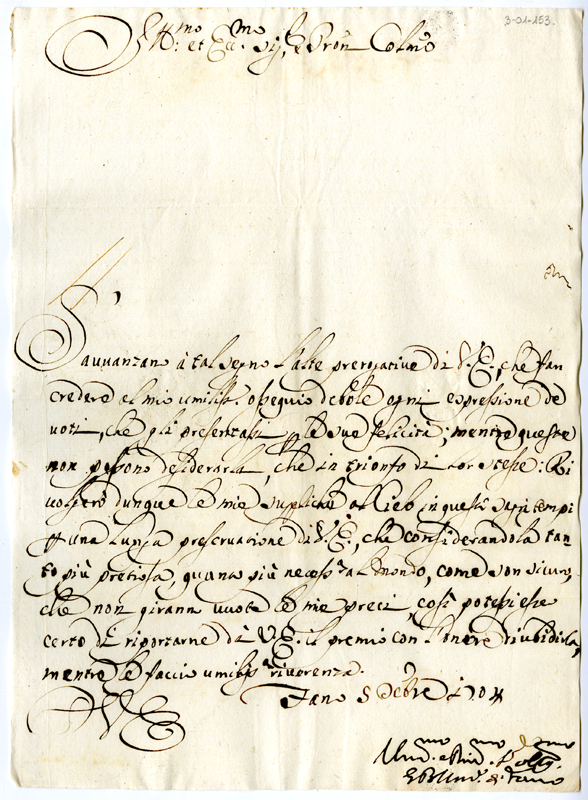 3-01-153.
Ill.mo et Ecc.mo Sig.re Pron Colmo
S'avvanzano à tal segno l'alte prerogative di V.E., che fan
credere al mio umiliss.o ossequio debole ogni espressione de
voti, che gli presentassi p le sue felicità; mentre queste
non possono desiderarla, che in trionfo di lor stesse: Ri
volgerò dunque le mie suppliche al Cielo in questi sagri tempi
p una lunga preservatione di V.E., che considerandola tan-
to più pretiosa, quanto più necess.a al Mondo, come son sicuro,
che non girann vuote le mie preci, così potessi esser
certo di riportarne da V.E. il premio con l'onore di ubidirla,
mentre le faccio umiliss.a riverenza.
Fano 5 Dcbre 1704
V E
Um.mo